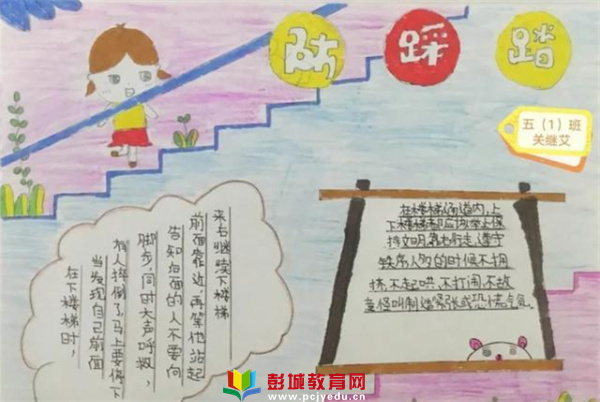 防踩踏
五（1）班
关继艾
在下楼梯时，
当发现自己前面
有人摔倒了，马上要停下
脚步，同时大声呼救，
告知后面的人不要向
前面靠近，再等他站起
来右继续下楼梯
在楼梯通道内，上
下楼梯都应该举止保
持文明，靠右行走，遵守
秩序人多的时候不拥
挤，不起哄，不打闹，不故
意怪叫制造紧张或恐怖气氛。
彭城教育网
www.pcjyedu.cn